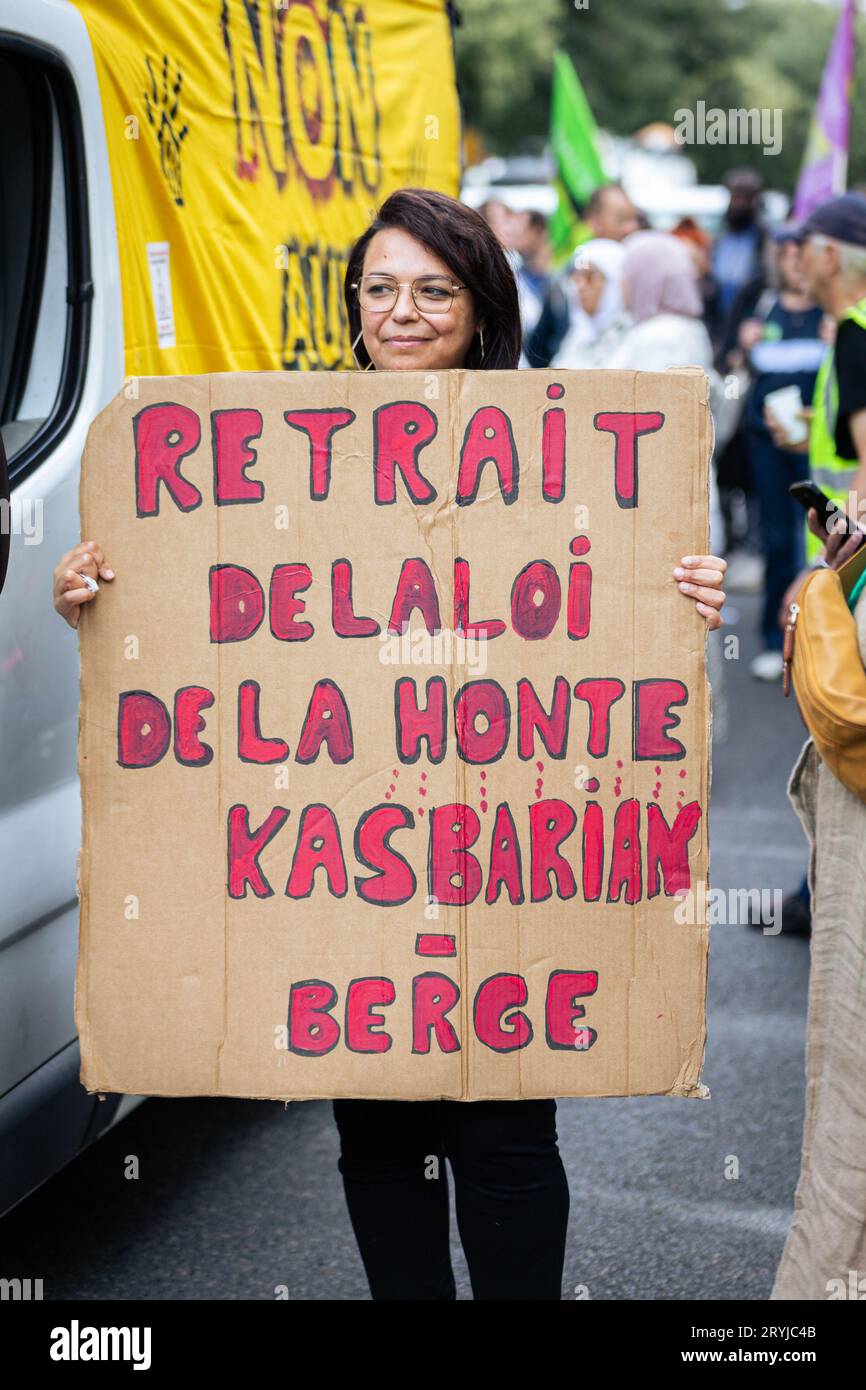 NON
AU
RETRAIT
DE LA LOI
DE LA HONTE
KASBARIAN
-
BERGE
alamy
Image ID: 2RYJC4B
www.alamy.com